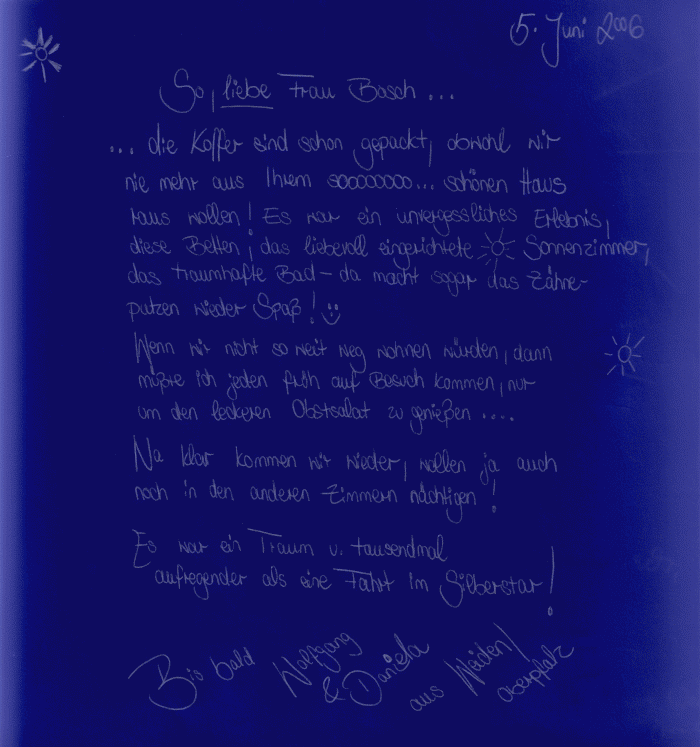 5. Juni 2006
So, liebe Frau Bosch ...
... die Koffer sind schon gepackt, obwohl wir
nie mehr aus Ihrem sooooooooo... schönen Haus
raus wollen! Es war ein unvergessliches Erlebnis,
diese Betten, das liebevoll eingerichtete Sonnenzimmer,
das traumhafte Bad - da macht sogar das Zähne-
putzen wieder Spaß!
Wenn wir nicht so weit weg wohnen würden, dann
müßte ich jeden früh auf Besuch kommen, nur
um den leckeren Obstsalat zu genießen ....
Na klar kommen wir wieder, wollen ja auch
noch in den anderen Zimmern nächtigen!
Es war ein Traum u. tausendmal
aufregender als eine Fahrt im Silberstar!
Bis bald Wolfgang
& Daniela
aus Weiden/
Oberpfalz